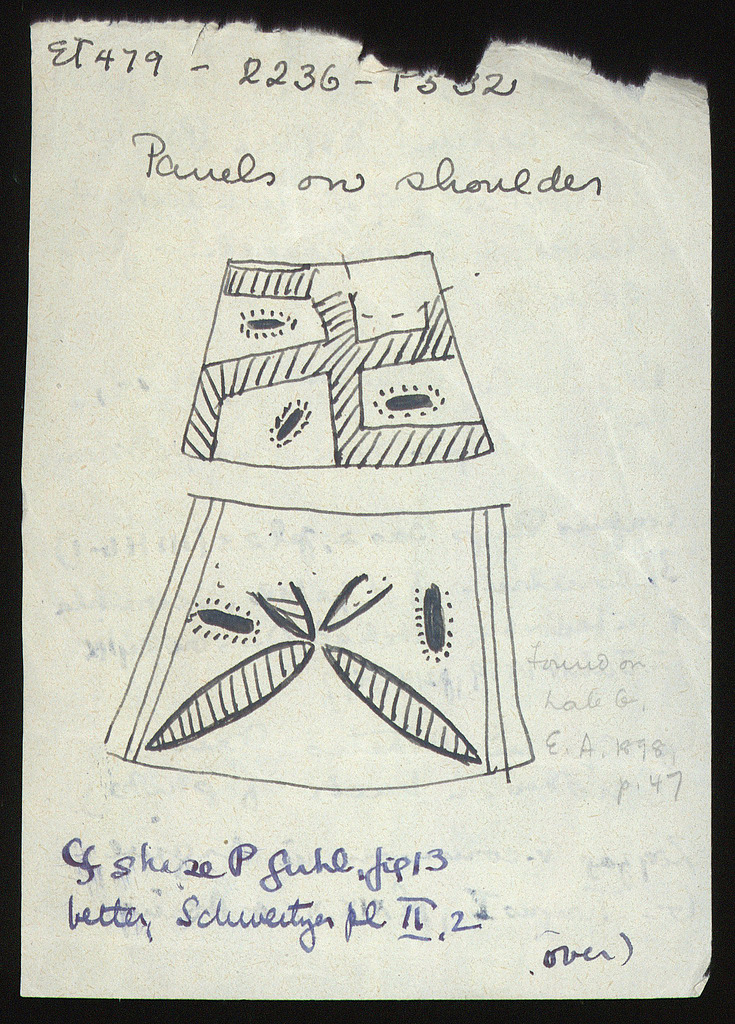 ET479 - 2236 - P532
Panels on shoulder
found on
E. A. 1898,
p. 47
Cf shape P
fig 13
better, Schweitzer pl II, 2
over)